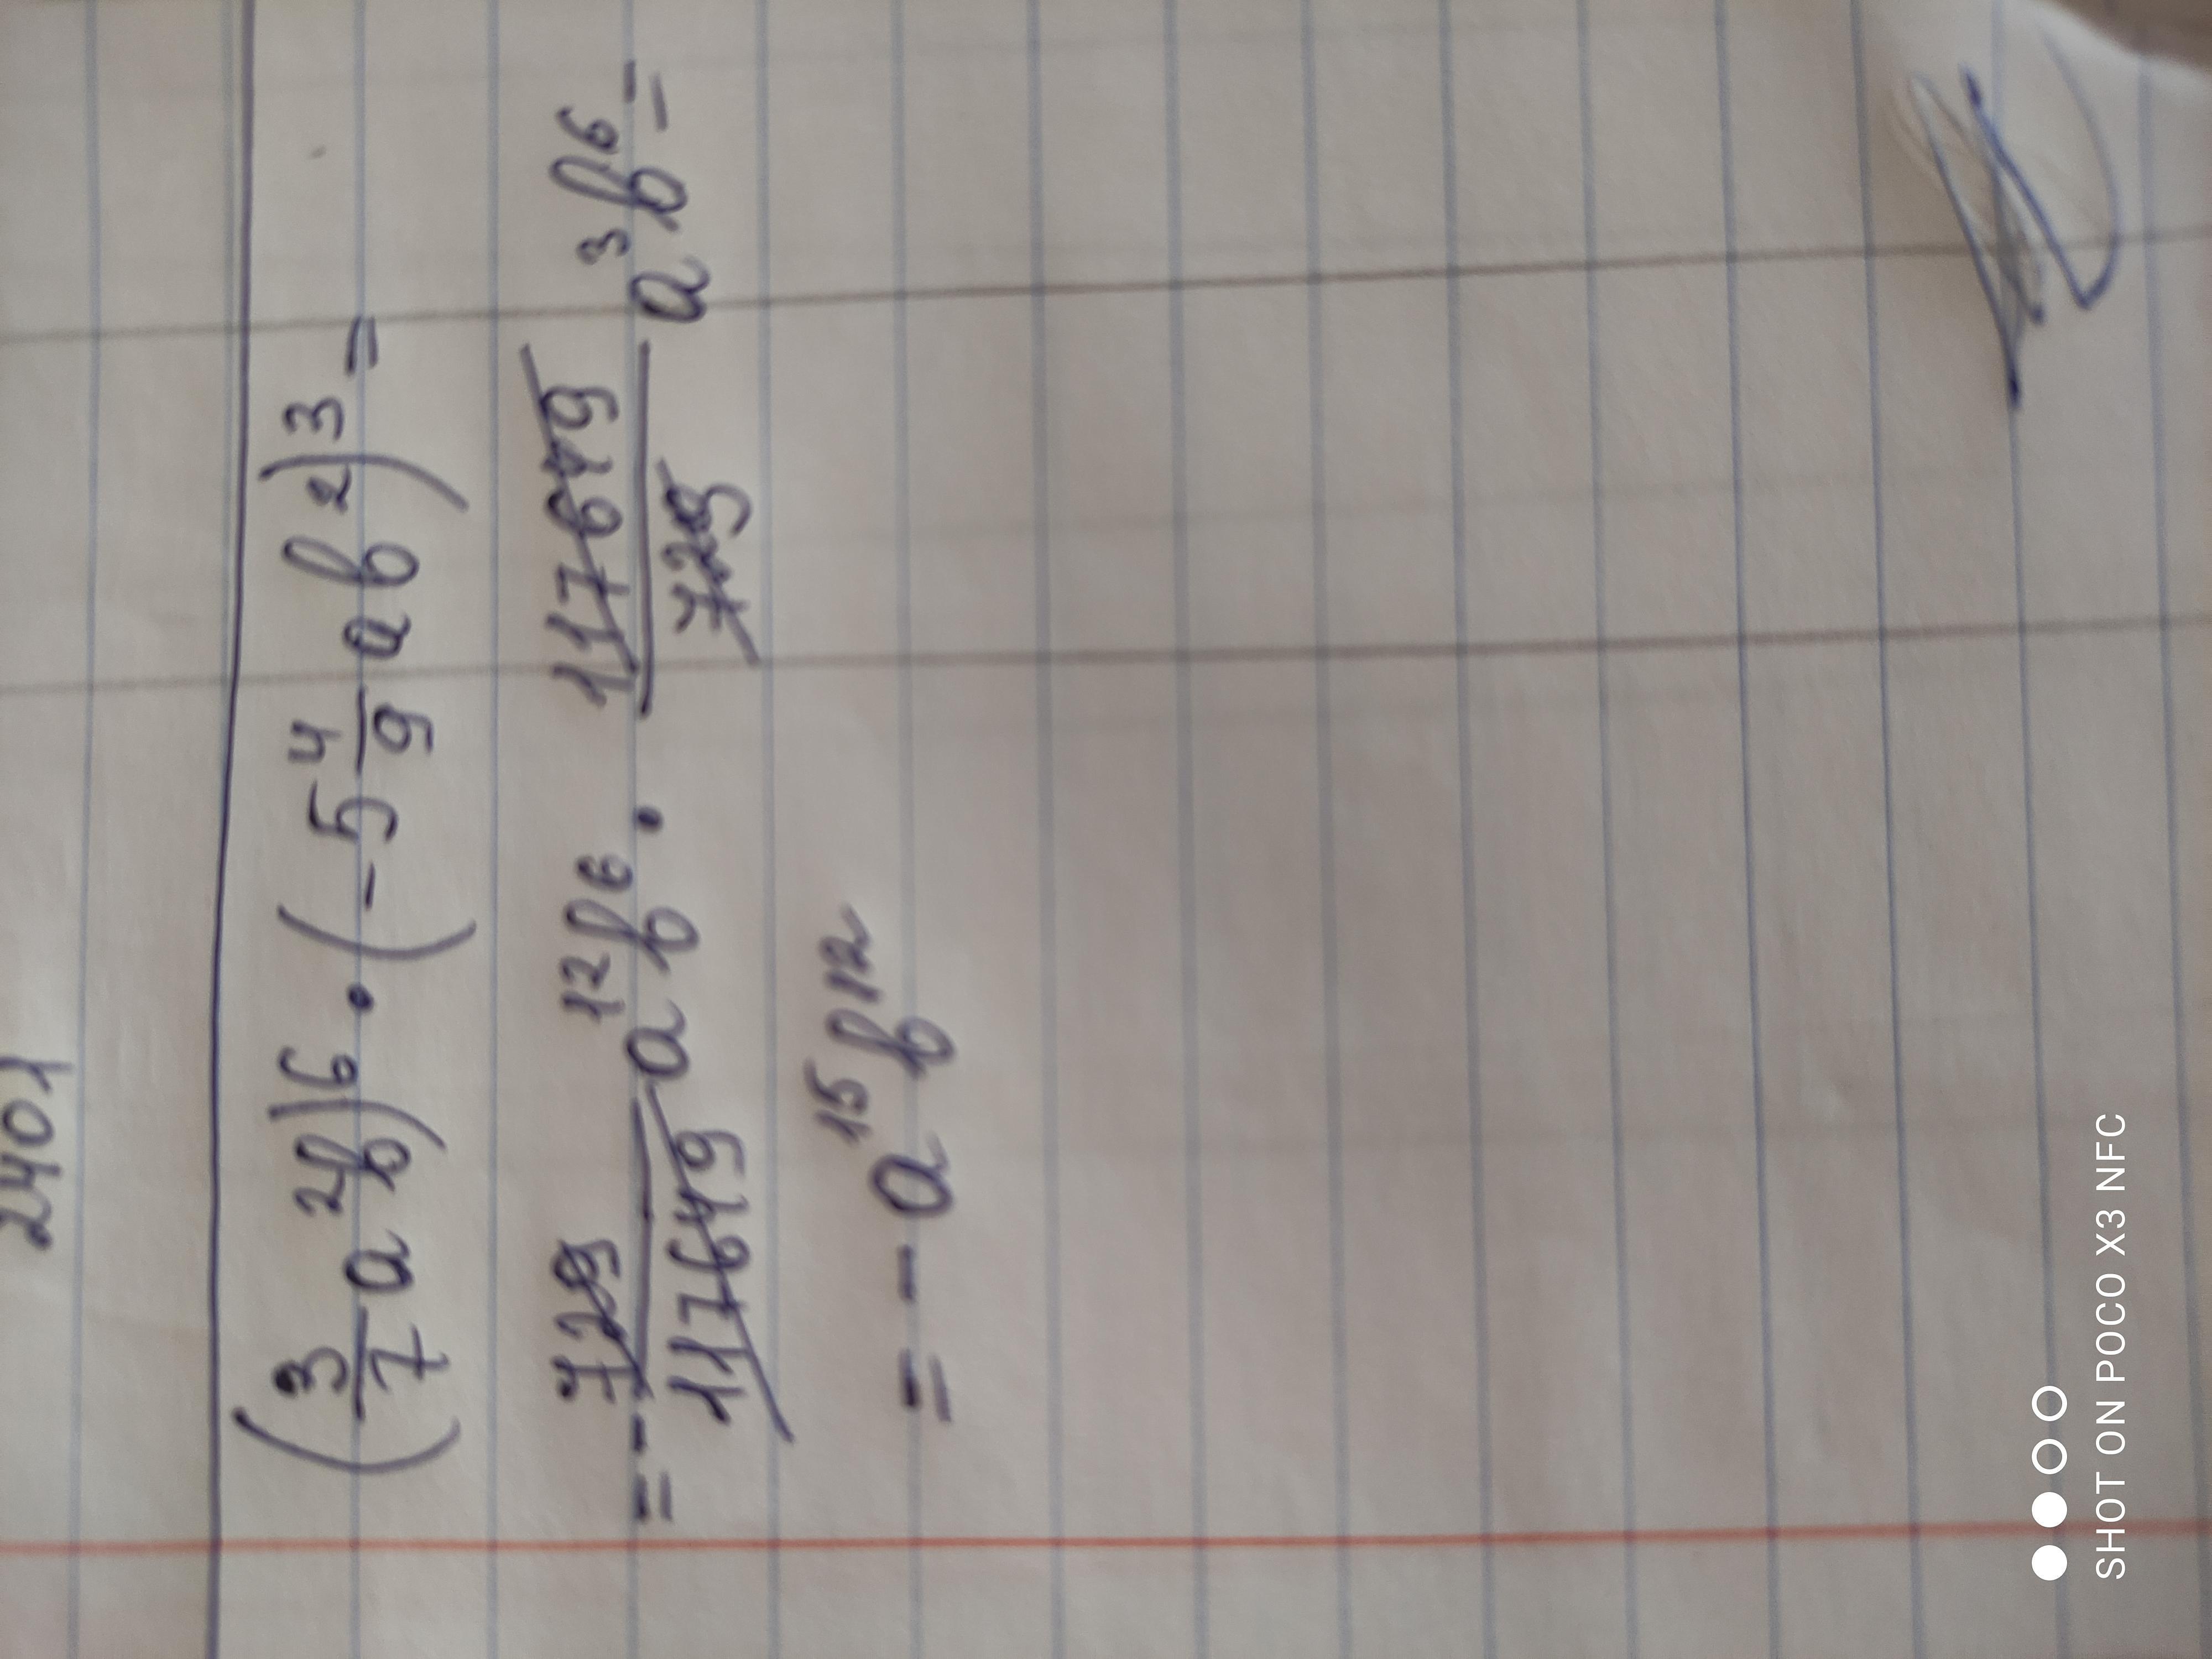 2401
(3/7 a²b)⁶ · (-5 4/9 ab²)³ =
= - 729/117649 a¹²b⁶ · 117649/729 a³b⁶ =
= - a¹⁵b¹²
SHOT ON POCO X3 NFC